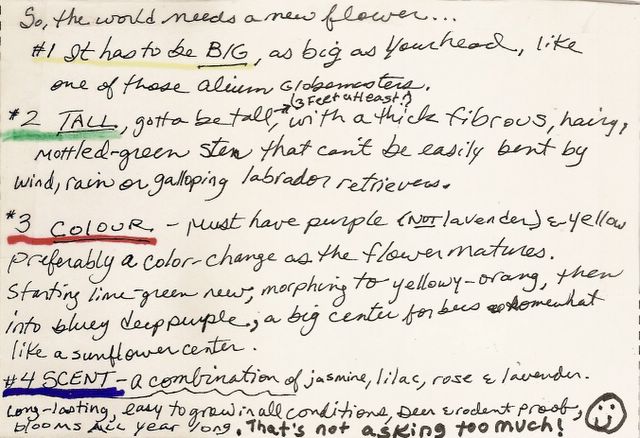 So, the world needs a new flower...
#1 It has to be BIG, as big as your head, like
one of those alium Globemasters.
(3 Feet at least!)
#2 TALL, gotta be tall, with a thick fibrous, hairy,
mottled-green stem that can't be easily bent by
wind, rain or galloping labrador retrievers.
#3 COLOUR - Must have purple (NOT lavender) & yellow
preferably a color-change as the flower matures.
Starting lime-green new, morphing to yellowy-orang, then
into bluey deep purple, a big center for bees somewhat
like a sunflower center.
#4 SCENT - a combination of jasmine, lilac, rose & lavender.
Long-lasting, easy to grow in all conditions, Deer & rodent proof,
blooms ALL year long. That's not asking too much!